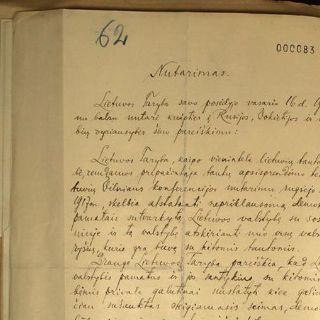 62
000083
Nutarimas.
Lietuvos Taryba savo posėdyje vasario 16 d. 19
m. balsu nutarė kreiptis į Rusijos, Vokietijos ir
vyriausybes šiuo pareiškimu:
Lietuvos Taryba, kaipo vienintelė lietuvių tauto
remdamos pripažintąja tautų apsisprendimo te
Vilniaus konferencijos nutarimu rugsėjo
1917 m., skelbia atstatanti nepriklausomą demok
pamatais sutvarkytą Lietuvos valstybę su sos
Vilniuje ir tą valstybę atskirianti nuo visų valst
ryšių, kurie yra buvę su kitomis tautomis.
Drauge Lietuvos Taryba pareiškia, kad L
valstybės pamatus ir jos santykius su kitomis
bėmis privalo galutinai nustatyti kiek galim
čiau sušauktas steigiamasis seimas, demok